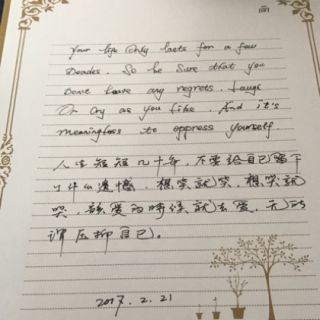 Your life Only lasts for a few
Decades. So be Sure that you
Dont leave any regrets. Laugh
Or Cry as you like. And it's
meaningless to oppress yourself.
人生短短几十年，不要给自己留下
什么遗憾。想笑就笑，想哭就
哭，该爱的时候就去爱，无所
谓压抑自己。
2017.2.21